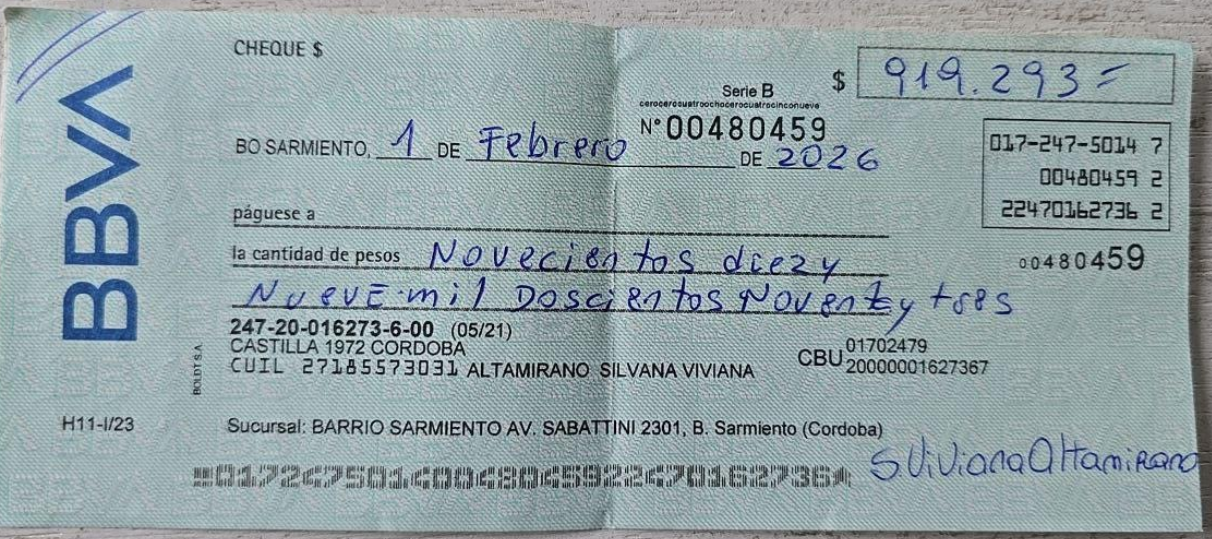 BBVA
CHEQUE $
$ 919.293=
Serie B
cerocerocuatroochocerocuatrocinconueve
N° 00480459
BO SARMIENTO, 1 DE Febrero DE 2026
017-247-5014 7
00480459 2
22470162736 2
páguese a
la cantidad de pesos Novecientos diez y
00480459
NuevE mil Doscientos Noventa y tres
247-20-016273-6-00 (05/21)
CASTILLA 1972 CORDOBA
CUIL 27185573031 ALTAMIRANO SILVANA VIVIANA
CBU 01702479
20000001627367
BOLDT S.A.
H11-I/23
Sucursal: BARRIO SARMIENTO AV. SABATTINI 2301, B. Sarmiento (Cordoba)
S.Viviana Altamirano
01724750140048045922470162736